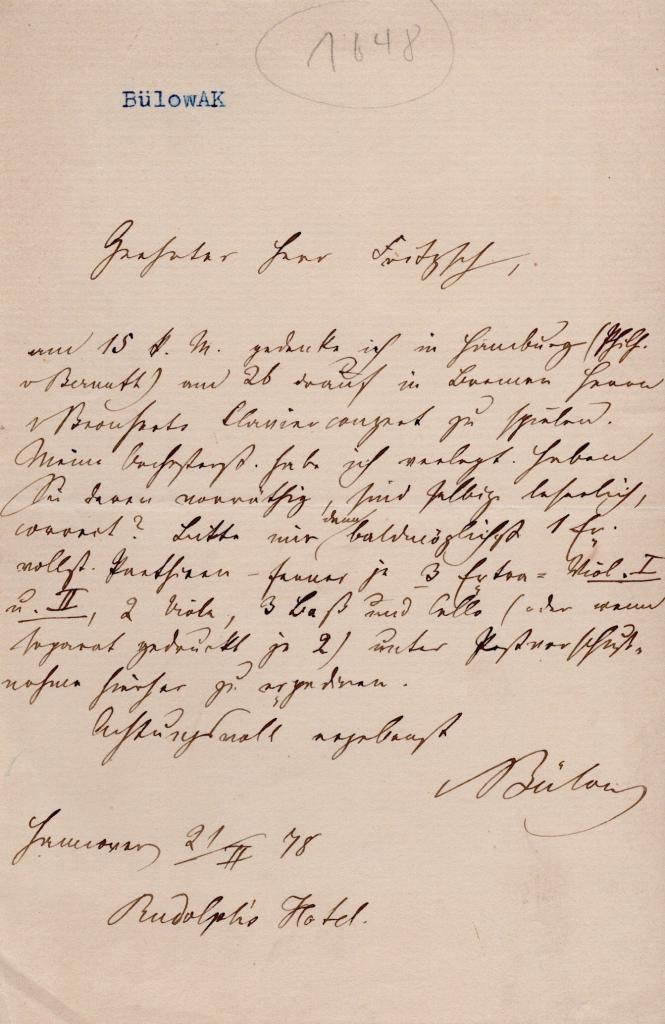 1648
BülowAK
Geehrter Herr Fritzsch,
am 15 k. M. gedenke ich in Hamburg (Philh.
v Bernuth) am 26 drauf in Bremen Herrn
v Bronsarts Clavierconzert zu spielen.
Meine Orchesterst. habe ich verlegt. Haben
Sie deren vorräthig, sind selbige leserlich,
correct? Bitte mir dann baldmöglichst 1 Ex.
vollst. Parthieen – ferner je 3 Extra= Viol. I
u. II, 2 Viola, 3 Baß und Cello (oder wenn
separat gedruckt je 2) unter Postvorschuß=
nahme hierher zu expediren.
Achtungsvoll ergebenst
vBülow
Hannover 21/II 78
Rudolph's Hotel.